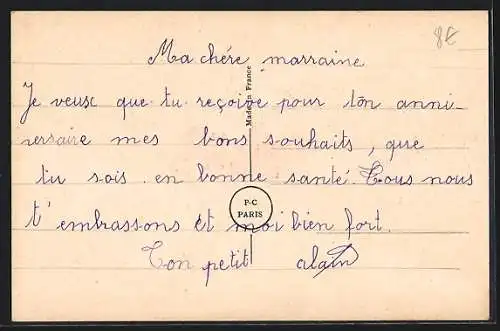 8€
Ma chére marraine
Made in France
Je veusc que tu reçoive pour ton anni-
versaire mes bons souhaits, que
tu sois en bonne santé. Tous nous
t'embrassons et moi bien fort.
P-C
PARIS
Ton petit alain